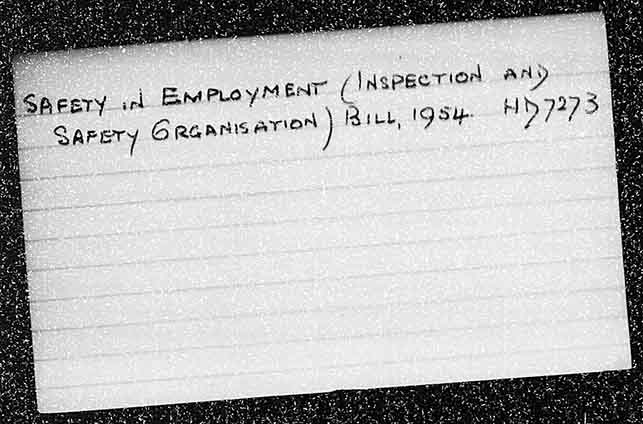 SAFETY IN EMPLOYMENT (INSPECTION AND
SAFETY ORGANISATION) BILL, 1954. HD7273